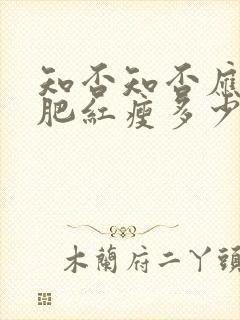 知否知否應
肥紅瘦多少
木蘭府二丫頭